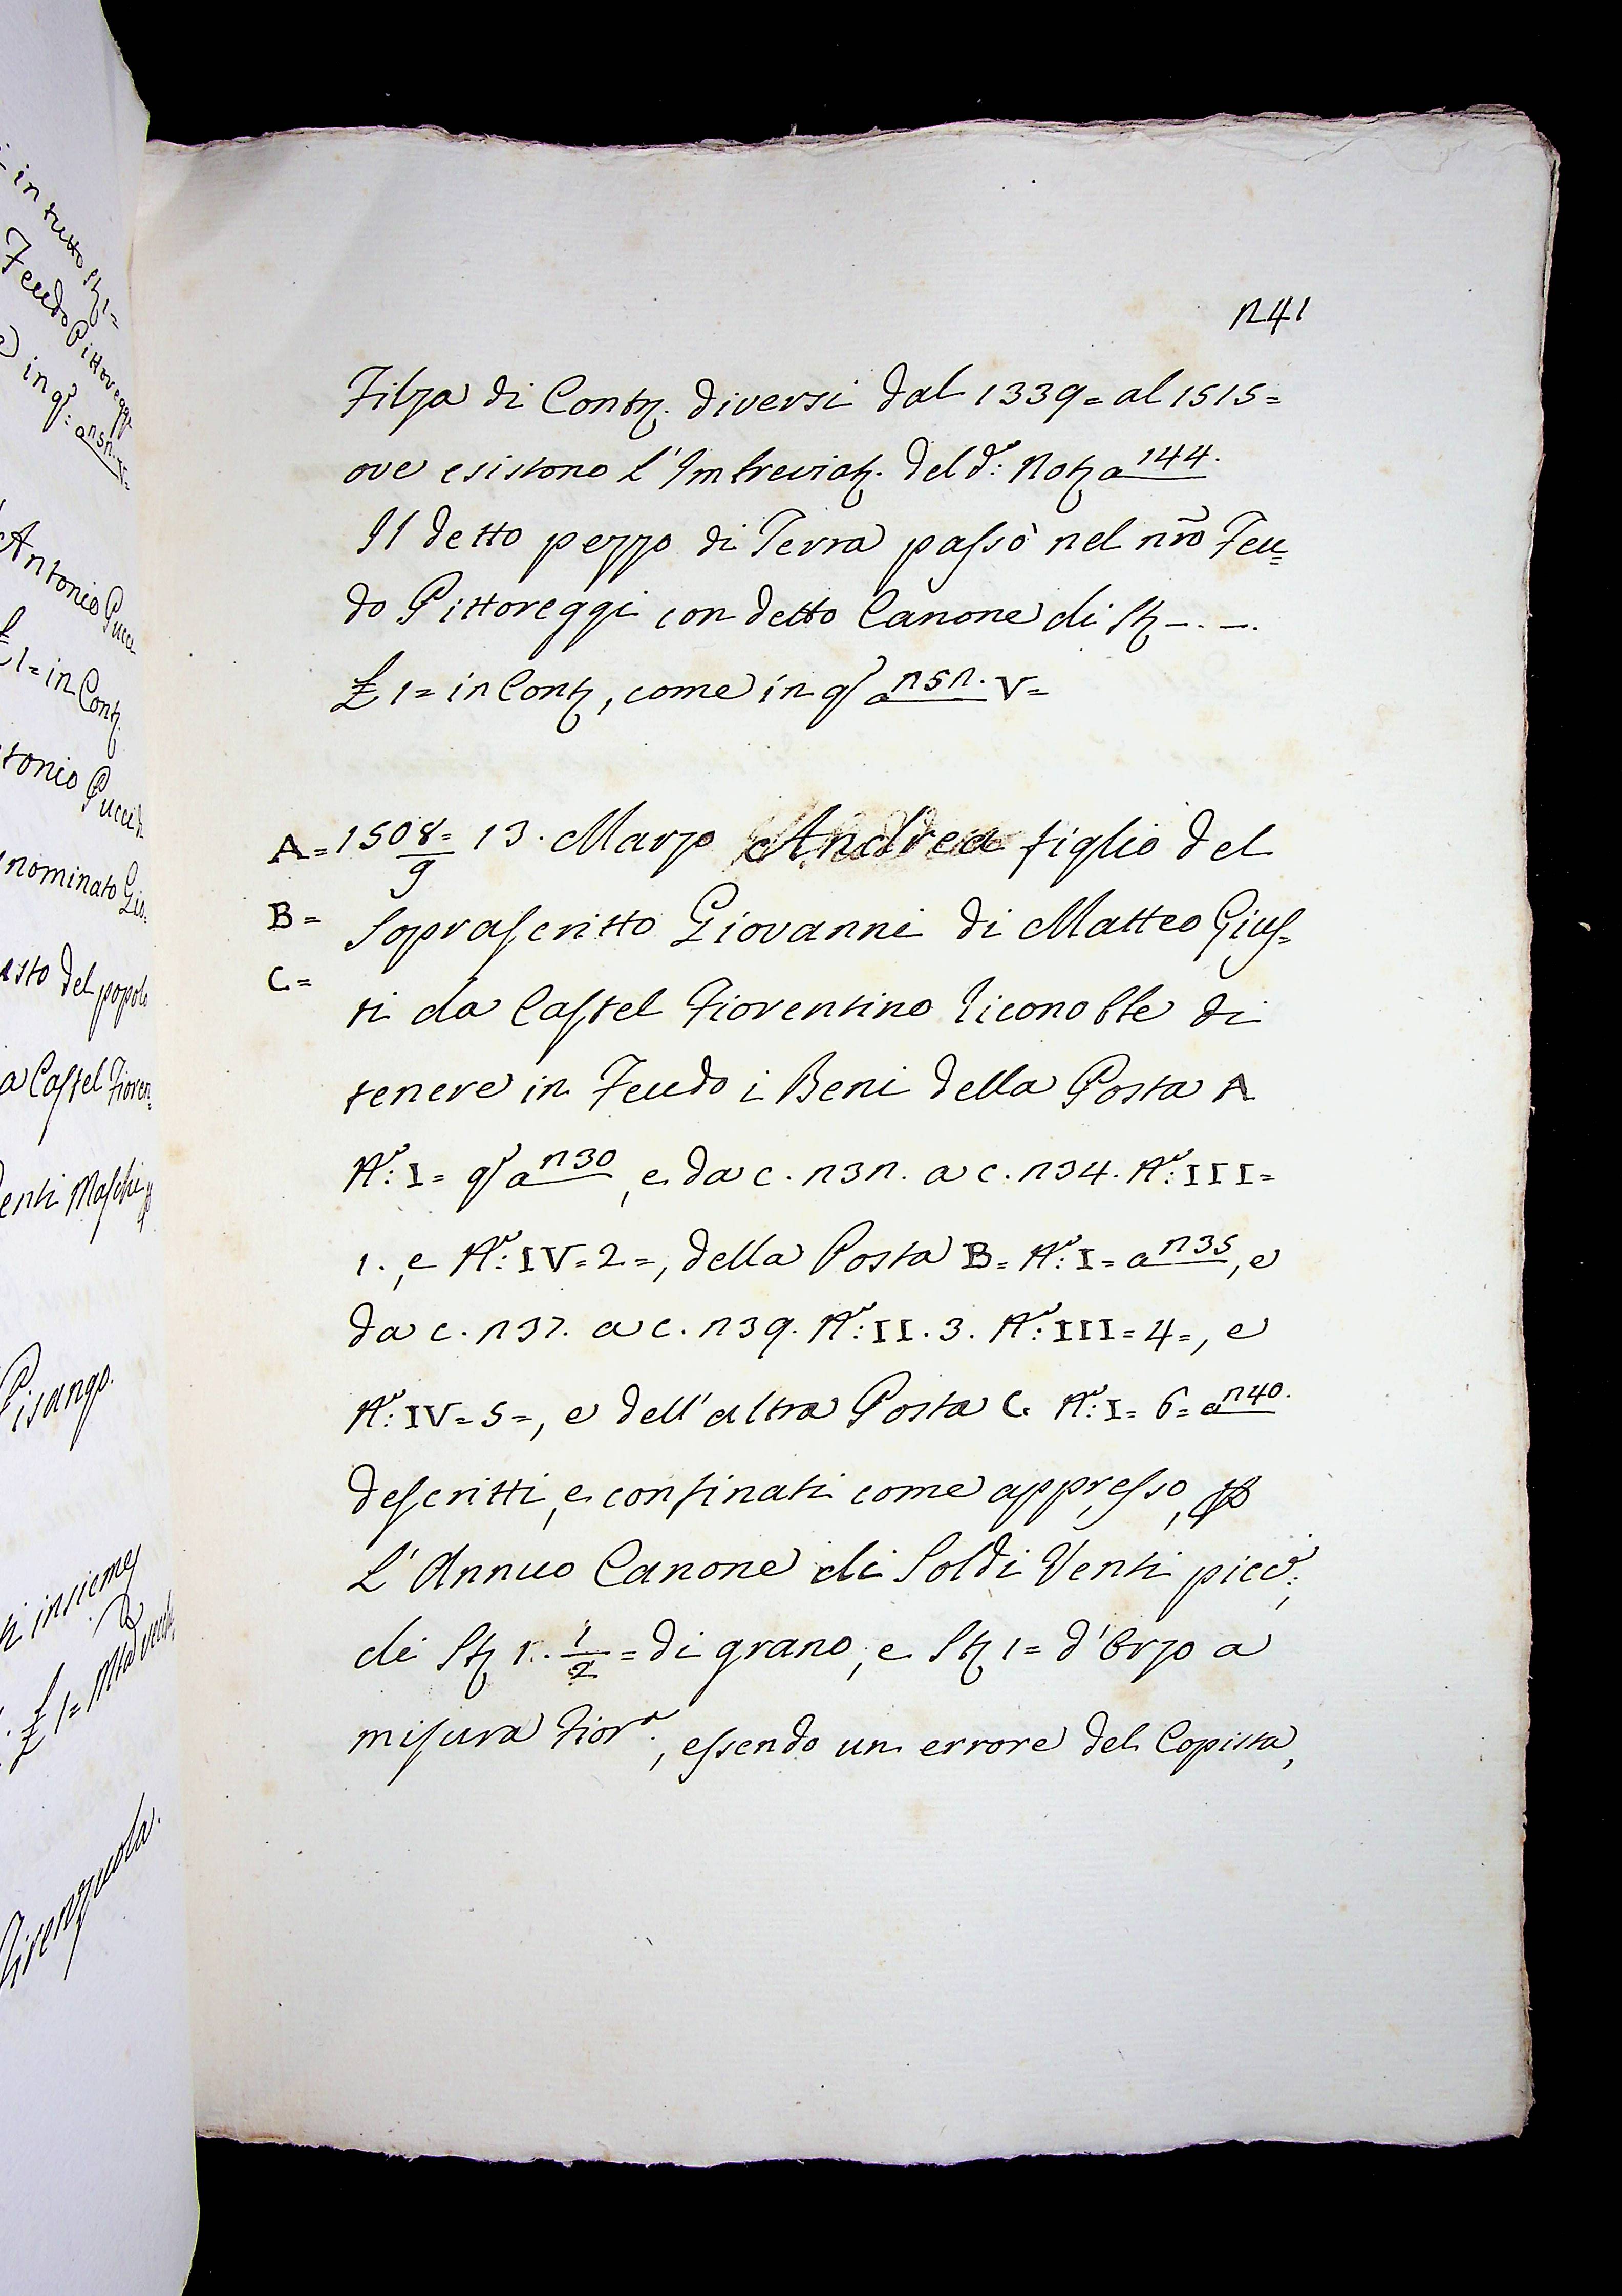 in tutto St 1=
Feudo Pittoreggi
in qo: a n5n. V=
Antonio Pucci
£ 1= in Cont.
tonio Pucci
nominato Gio:
del popolo
a Castel Fioren=
enti Maschi
Pisango.
ti insieme
£ 1=
Firenzuola.
n41
Filza di Contti. diversi dal 1339= al 1515=
ove esistono l'Imbreviati. del do: Nota a 144.
Il detto pezzo di Terra passò nel nro Feu=
do Pittoreggi con detto Canone di St -. -.
£ 1= in Conti, come in qo a n5n. V=
A= 1508=/9 13. Marzo Andrea figlio del
B= Soprascritto Giovanni di Matteo Gius=
C= ti da Castel Fiorentino riconobbe di
tenere in Feudo i Beni della Posta A
No: I= qo a n30, e da c. n3n. a c. n34. No: III=
1., e No: IV= 2=, della Posta B= No: I= a n35, e
da c. n37. a c. n39. No: II. 3. No: III= 4=, e
No: IV= 5=, e dell'altra Posta C. No: I= 6= a n40.
descritti, e confinati come appresso, p
L'Annuo Canone di Soldi Venti picco:,
di St 1. 1/2= di grano, e St 1= d'Orzo a
misura Fiora., essendo un errore del Copista,